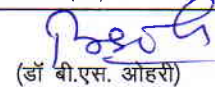 (डॉ बी.एस. ओहरी)